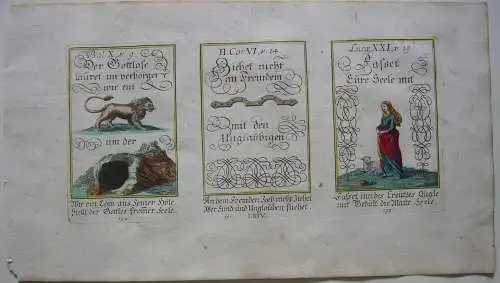 Psal. X. v. 9.
Der Gottlose
lauret im verborgen
wie ein
aus der
Wie ein Löw aus seiner Höle
stellt der Gottlos frommer Seele.
II Cor. VI, v. 14.
Ziehet nicht
an fremdem
mit den
Unglaubigen
An dem fremden Joch nicht ziehet
Wer Sünd und Unglauben fliehet
LXIV.
Luc. XXI, v. 19
Fasset
Eure Seele mit
Fasset in des Creutzes Quale
mit Gedult die Matte Seele